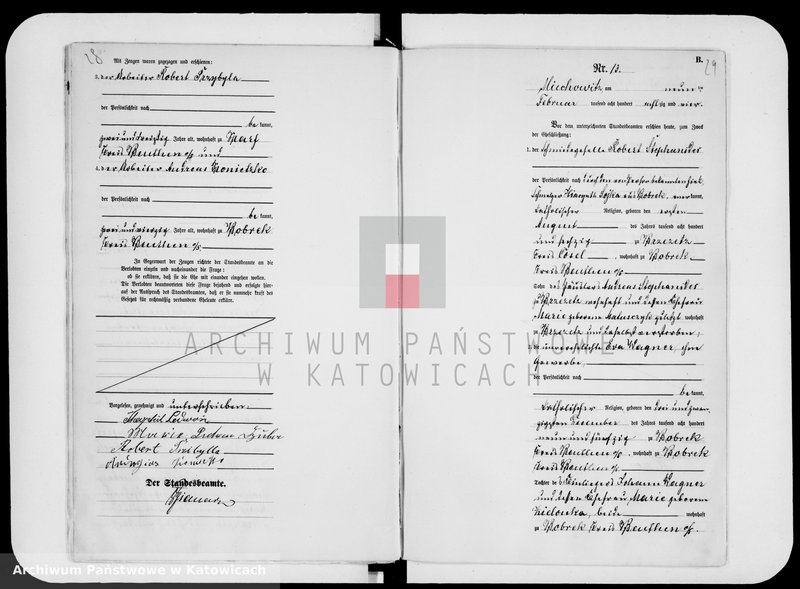 28
Als Zeugen waren zugezogen und erschienen:
3. der Arbeiter Robert Przybyla
der Persönlichkeit nach
be kannt,
zwei und dreißig Jahre alt, wohnhaft zu Karf
Kreis Beuthen o/s und
4. der Arbeiter Andreas
der Persönlichkeit nach
be kannt,
Jahre alt, wohnhaft zu Bobrek
Kreis Beuthen o/s
In Gegenwart der Zeugen richtete der Standesbeamte an die
Verlobten einzeln und nacheinander die Frage:
ob sie erklären, daß sie die Ehe mit einander eingehen wollen.
Die Verlobten beantworteten diese Frage bejahend und erfolgte hier-
auf der Ausspruch des Standesbeamten, daß er sie nunmehr kraft des
Gesetzes für rechtmäßig verbundene Eheleute erkläre.
Vorgelesen, genehmigt und unterschrieben:
Marie
Robert
Der Standesbeamte.
B.
29
Nr. 13.
Miechowitz am neun ten
Februar tausend acht hundert achtzig und vier.
Vor dem unterzeichneten Standesbeamten erschien heute, zum Zweck
der Eheschließung:
1. der Schmiedegeselle Robert Stephanides
der Persönlichkeit nach durch den von Person bekannten
aus Bobrek, anerkannt,
katholischer Religion, geboren den ersten
August des Jahres tausend acht hundert
und sechzig zu Brzezetz
Kreis Cosel, wohnhaft zu Bobrek
Kreis Beuthen o/s
Sohn des Häuslers Andreas Stephanides
zu Brzezetz wohnhaft und dessen Ehefrau
Marie geborene zuletzt wohnhaft
zu Brzezetz und daselbst verstorben;
2. die unverehelichte Eva Wagner, ohne
Gewerbe,
der Persönlichkeit nach
be kannt,
katholischer Religion, geboren den drei und zwan-
zigsten Dezember des Jahres tausend acht hundert
neun und fünfzig zu Bobrek
Kreis Beuthen o/s, wohnhaft zu Bobrek
Kreis Beuthen o/s
Tochter des Johann Wagner
und dessen Ehefrau Marie geborene
beide wohnhaft
zu Bobrek Kreis Beuthen o/s.
ARCHIWUM PAŃSTWOWE
W KATOWICACH
Archiwum Państwowe w Katowicach